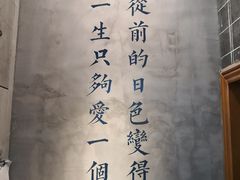 從前的日色變得
一生只夠愛一個